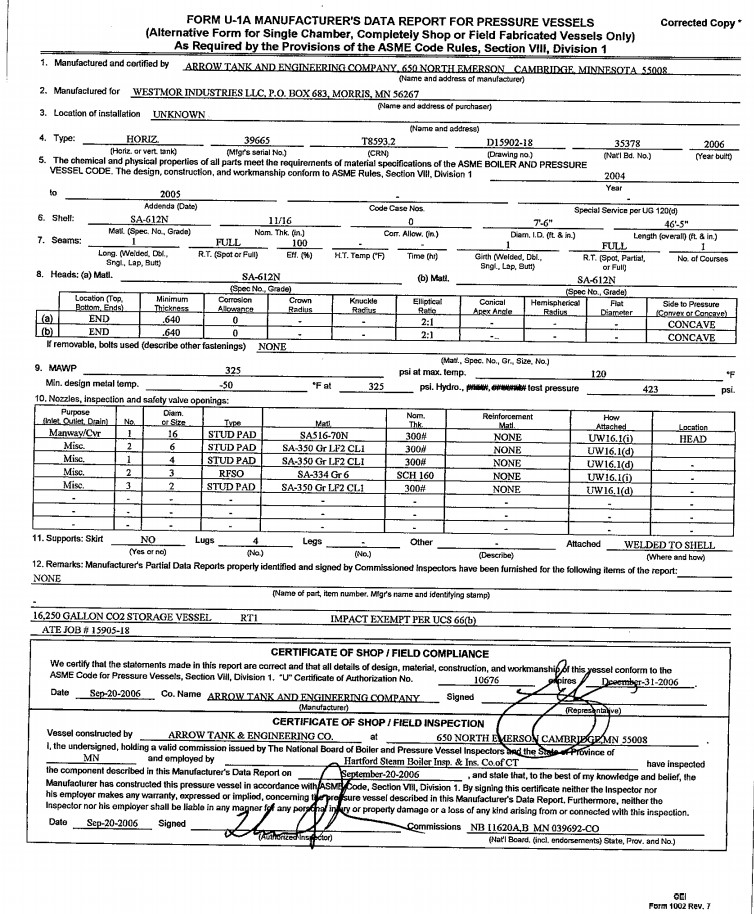 FORM U-1A MANUFACTURER'S DATA REPORT FOR PRESSURE VESSELS
Corrected Copy *
(Alternative Form for Single Chamber, Completely Shop or Field Fabricated Vessels Only)
As Required by the Provisions of the ASME Code Rules, Section VIII, Division 1
1. Manufactured and certified by ARROW TANK AND ENGINEERING COMPANY, 650 NORTH EMERSON CAMBRIDGE, MINNESOTA 55008
(Name and address of manufacturer)
2. Manufactured for WESTMOR INDUSTRIES LLC, P.O. BOX 683, MORRIS, MN 56267
(Name and address of purchaser)
3. Location of installation UNKNOWN
(Name and address)
4. Type: HORIZ. 39665 T8593.2 D15902-18 35378 2006
(Horiz. or vert. tank) (Mfgr's serial No.) (CRN) (Drawing no.) (Nat'l Bd. No.) (Year built)
5. The chemical and physical properties of all parts meet the requirements of material specifications of the ASME BOILER AND PRESSURE
VESSEL CODE. The design, construction, and workmanship conform to ASME Rules, Section VIII, Division 1 2004
Year
to 2005 - -
Addenda (Date) Code Case Nos. Special Service per UG 120(d)
6. Shell: SA-612N 11/16 0 7'-6" 46'-5"
Matl. (Spec No., Grade) Nom. Thk. (in.) Corr. Allow. (in.) Diam. I.D. (ft. & in.) Length (overall) (ft. & in.)
7. Seams: 1 FULL 100 - - 1 FULL 1
Long. (Welded, Dbl., Sngl., Lap, Butt) R.T. (Spot or Full) Eff. (%) H.T. Temp (°F) Time (hr) Girth (Welded, Dbl., Sngl., Lap, Butt) R.T. (Spot, Partial, or Full) No. of Courses
8. Heads: (a) Matl. SA-612N (b) Matl. SA-612N
(Spec No., Grade) (Spec No., Grade)
Location (Top, Bottom, Ends) Minimum Thickness Corrosion Allowance Crown Radius Knuckle Radius Elliptical Ratio Conical Apex Angle Hemispherical Radius Flat Diameter Side to Pressure (Convex or Concave)
(a) END .640 0 - - 2:1 - - - CONCAVE
(b) END .640 0 - - 2:1 - - - CONCAVE
If removable, bolts used (describe other fastenings) NONE
(Matl., Spec. No., Gr., Size, No.)
9. MAWP 325 psi at max. temp. 120 °F
Min. design metal temp. -50 °F at 325 psi. Hydro., test pressure 423 psi.
10. Nozzles, inspection and safety valve openings:
Purpose (Inlet, Outlet, Drain) No. Diam. or Size Type Matl. Nom. Thk. Reinforcement Matl. How Attached Location
Manway/Cvr 1 16 STUD PAD SA516-70N 300# NONE UW16.1(i) HEAD
Misc. 2 6 STUD PAD SA-350 Gr LF2 CL1 300# NONE UW16.1(d)
Misc. 1 4 STUD PAD SA-350 Gr LF2 CL1 300# NONE UW16.1(d) -
Misc. 2 3 RFSO SA-334 Gr 6 SCH 160 NONE UW16.1(i) -
Misc. 3 2 STUD PAD SA-350 Gr LF2 CL1 300# NONE UW16.1(d) -
- - - - - - - - -
- - - - - - - - -
- - - - - - - - -
11. Supports: Skirt NO Lugs 4 Legs - Other - Attached WELDED TO SHELL
(Yes or no) (No.) (No.) (Describe) (Where and how)
12. Remarks: Manufacturer's Partial Data Reports properly identified and signed by Commissioned Inspectors have been furnished for the following items of the report:
NONE
(Name of part, item number. Mfgr's name and identifying stamp)
-
16,250 GALLON CO2 STORAGE VESSEL RT1 IMPACT EXEMPT PER UCS 66(b)
ATE JOB # 15905-18
CERTIFICATE OF SHOP / FIELD COMPLIANCE
We certify that the statements made in this report are correct and that all details of design, material, construction, and workmanship of this vessel conform to the
ASME Code for Pressure Vessels, Section VIII, Division 1. "U" Certificate of Authorization No. 10676 expires December-31-2006 .
Date Sep-20-2006 Co. Name ARROW TANK AND ENGINEERING COMPANY Signed
(Manufacturer) (Representative)
CERTIFICATE OF SHOP / FIELD INSPECTION
Vessel constructed by ARROW TANK & ENGINEERING CO. at 650 NORTH EMERSON CAMBRIDGE, MN 55008 .
I, the undersigned, holding a valid commission issued by The National Board of Boiler and Pressure Vessel Inspectors and the State or Province of
MN and employed by Hartford Steam Boiler Insp. & Ins. Co.of CT have inspected
the component described in this Manufacturer's Data Report on September-20-2006 , and state that, to the best of my knowledge and belief, the
Manufacturer has constructed this pressure vessel in accordance with ASME Code, Section VIII, Division 1. By signing this certificate neither the Inspector nor
his employer makes any warranty, expressed or implied, concerning the pressure vessel described in this Manufacturer's Data Report. Furthermore, neither the
Inspector nor his employer shall be liable in any manner for any personal injury or property damage or a loss of any kind arising from or connected with this inspection.
Date Sep-20-2006 Signed Commissions NB 11620A,B MN 039692-CO
(Authorized Inspector) (Nat'l Board, (incl. endorsements) State, Prov. and No.)
OEI
Form 1002 Rev. 7